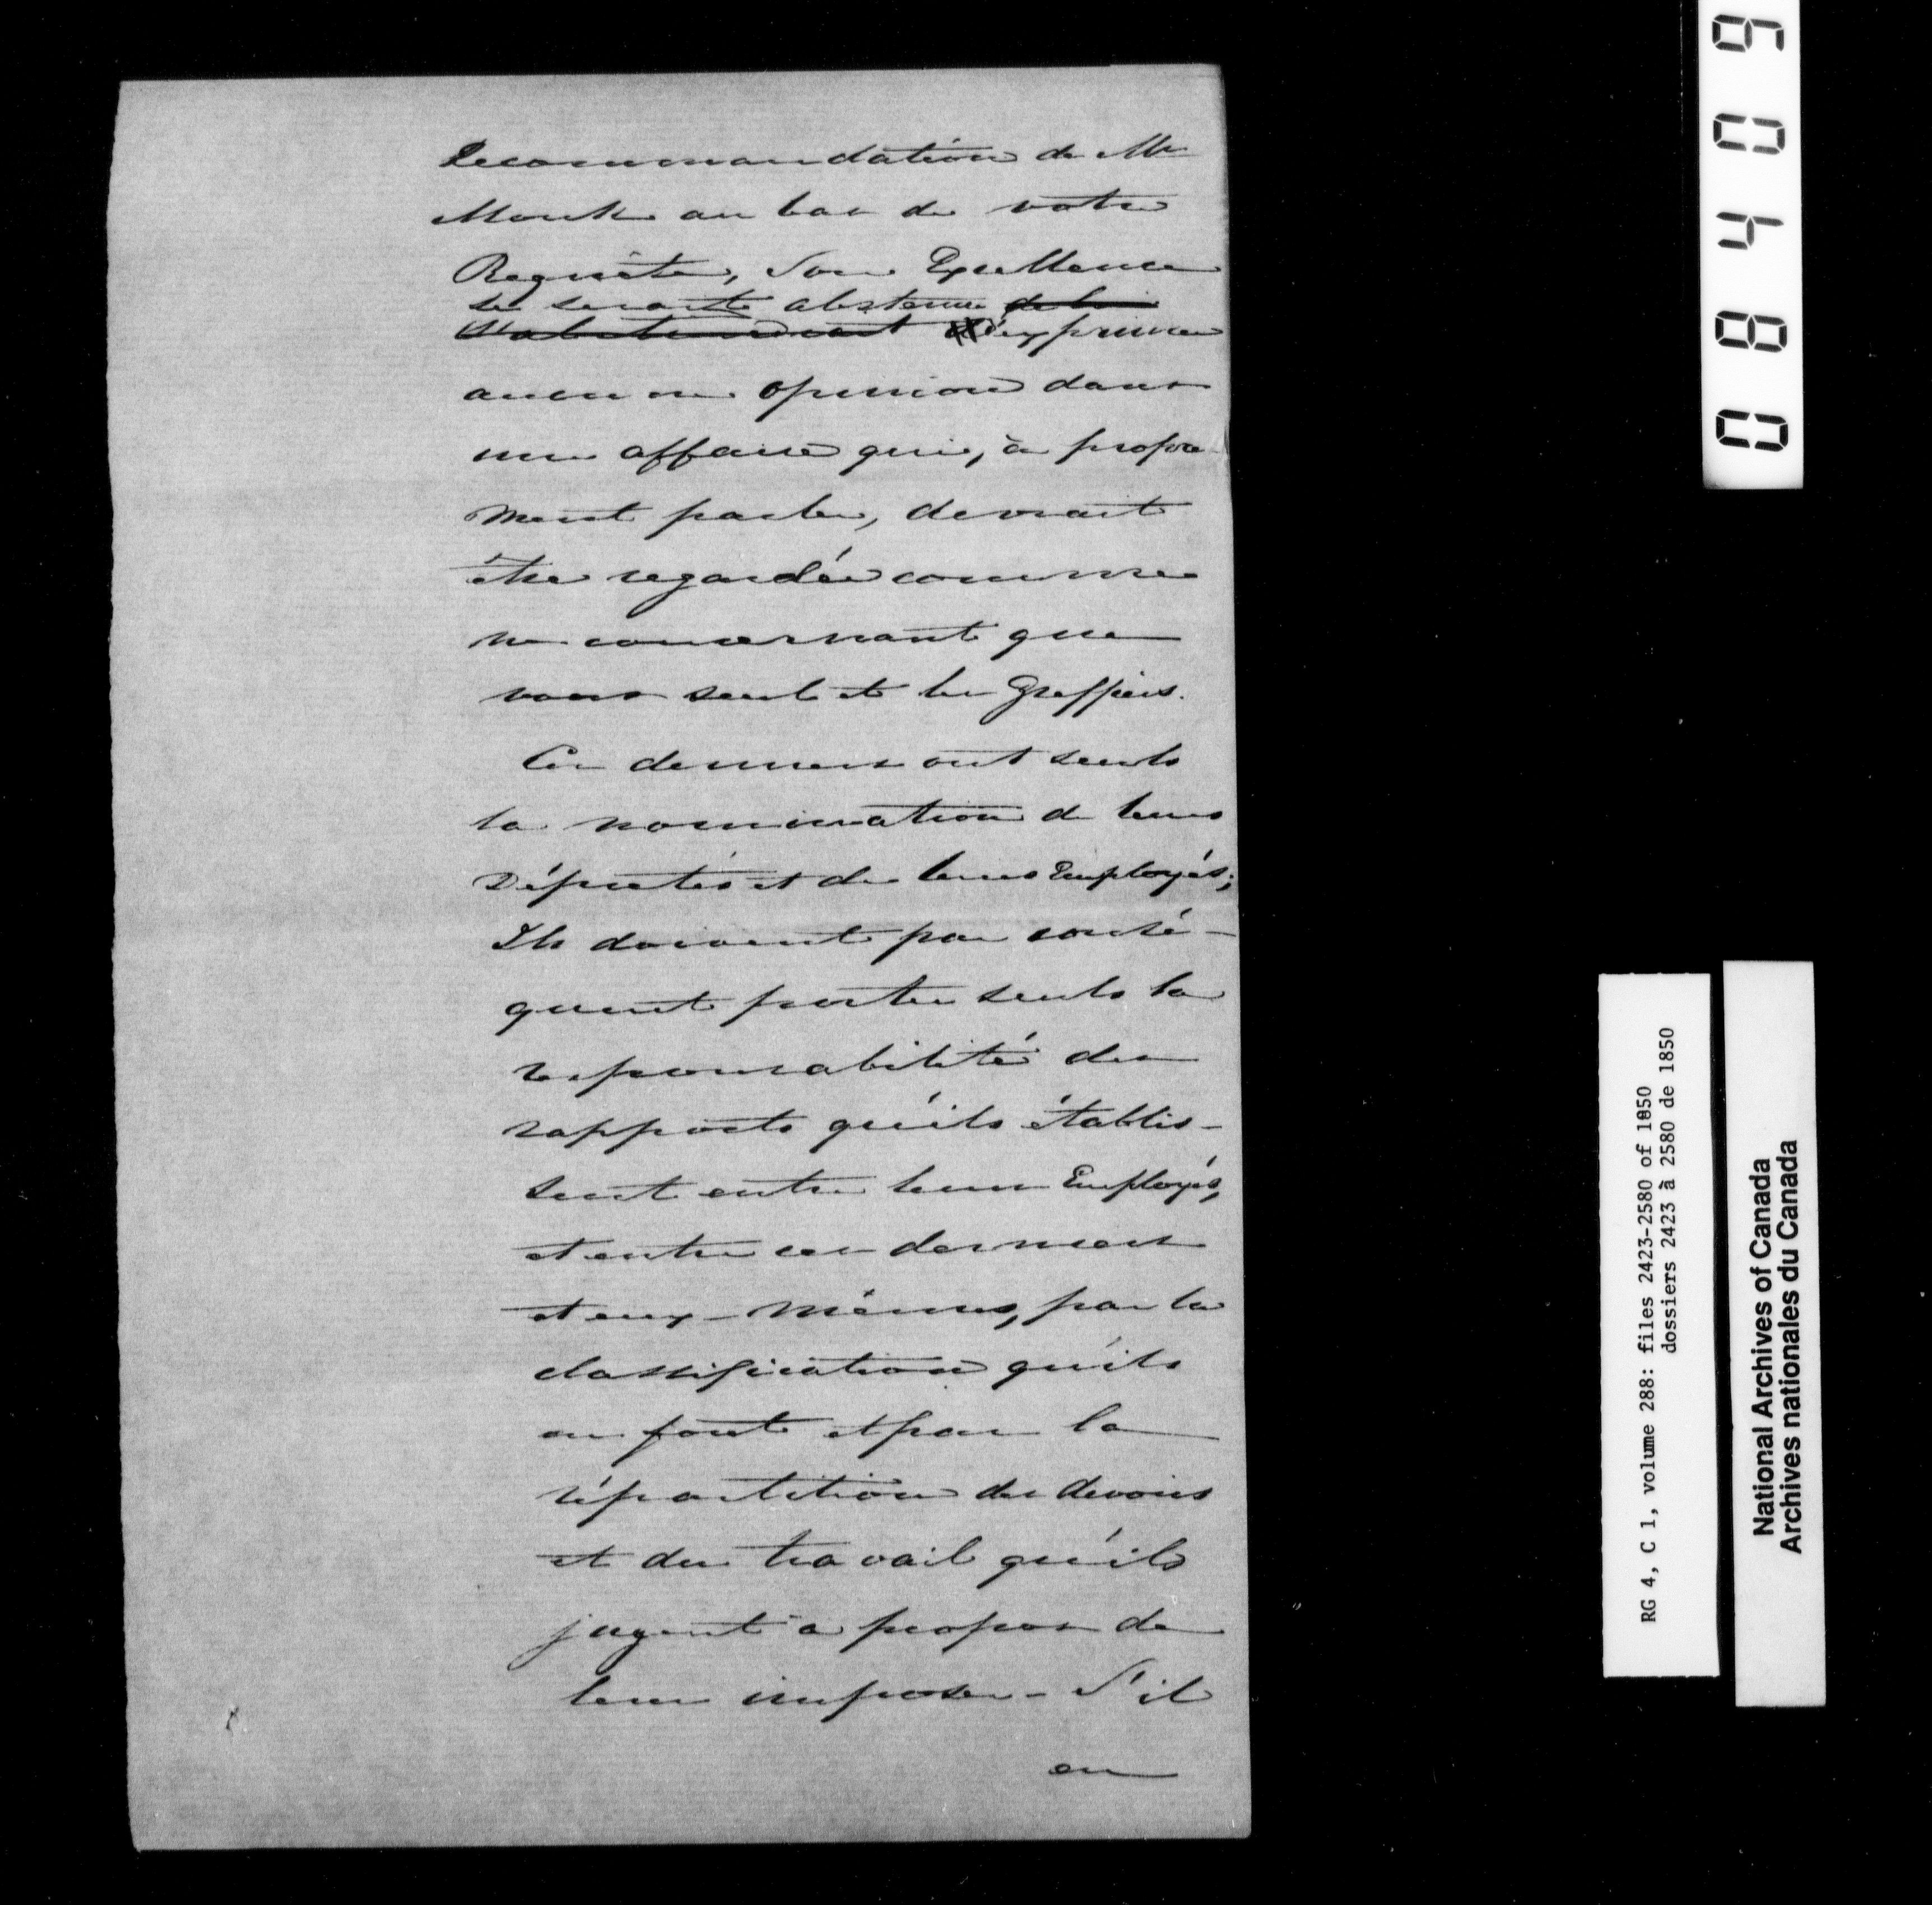 Recommandation de Mr
Monk au bas de votre
Requête, Son Excellence
se serait abstenue de lui
s'abstiendrait d'exprimer
aucune opinion dans
une affaire qui, à propre
ment parler, devrait
être regardée comme
ne concernant que
vous seul et les Greffiers.
Ces derniers ont seuls
la nomination de leurs
Députés et de leurs Employés;
Ils doivent par consé-
quent porter seuls la
responsabilité des
rapports qu'ils établis-
sent entre leurs Employés,
et entre ces derniers
et eux-mêmes, par la
classification qu'ils
en font et par la
répartition des devoirs
et du travail qu'ils
jugent à propos de
leur imposer - S'il
en
08409
RG 4, C 1, volume 288: files 2423-2580 of 1850
dossiers 2423 à 2580 de 1850
National Archives of Canada
Archives nationales du Canada